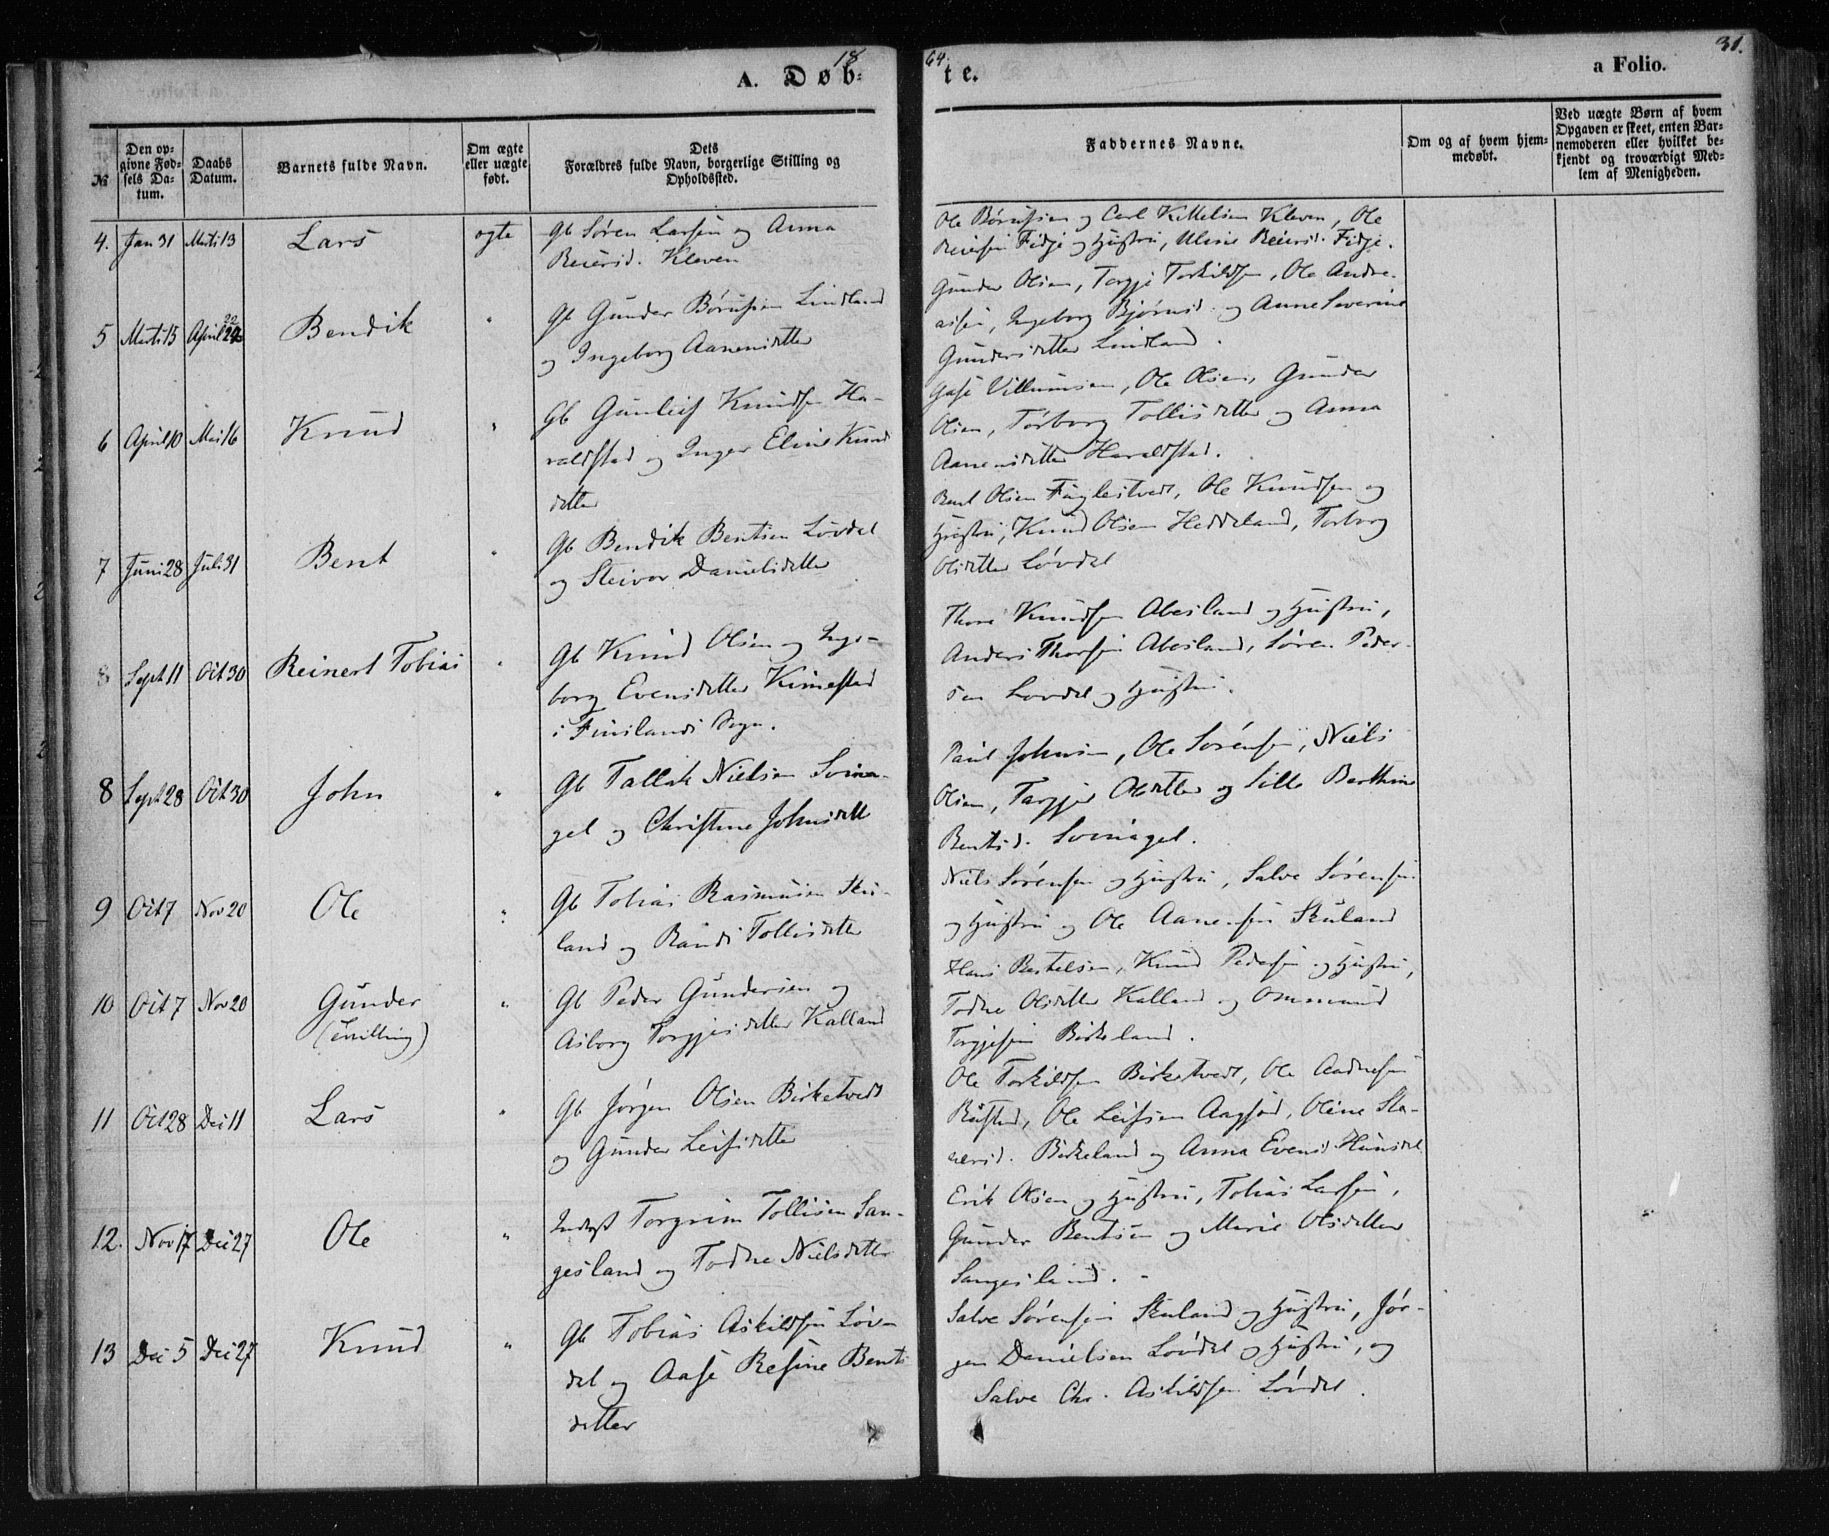 18
64.
31.
A. Døb-
te.
a Folio.
№
Den op-
givne Fød-
sels Da-
tum.
Daabs
Datum.
Barnets fulde Navn.
Om ægte
eller uægte
født.
Dets
Forældres fulde Navn, borgerlige Stilling og
Opholdssted.
Faddernes Navne.
Om og af hvem hjem-
medøbt.
Ved uægte Børn af hvem
Opgaven er skeet, enten Bar-
nemoderen eller hvilket be-
kjendt og troværdigt Med-
lem af Menigheden.
4. Jan 31 Marti 13 Lars ægte Gb Søren Larsen og Anna
Reiersd. Kleven
Ole Børufsen og Carl Kittelsen Kleven, Ole
Reiersen Fidje og Hustru, Reiersd. Fidje.
5 Marti 13 April 24 22 Bendik " Gb Gunder Børufsen Lindland
og Ingeborg Aanensdatter
Gunder Olsen, Torgje Torkildsen, Ole Andre-
asen, Ingeborg Bjørnsd. og Anne Severine
Gundersdatter Lindland.
6 April 10 Mai 16 Knud " Gb Gunleif Knudsen Ha-
raldstad og Inger Eline Knud
datter
Villumsen, Ole Olsen, Gunder
Olsen, Torborg Tollisdatter og Anna
Aanensdatter Haraldstad.
7 Juni 28 Juli 31 Bent " Gb Bendik Bentsen Løvdal
og Steivor Danielsdatter
Bent Olsen Fuglestvedt, Ole Knudsen og
Hustru, Knud Olsen Heddeland, Torborg
Olsdatter Løvdal
8 Sept 11 Oct 30 Reinert Tobias " Gb Knud Olsen og Inge-
borg Evensdatter Kimestad
i Finslands Sogn.
Thore Knudsen Abesland og Hustru,
Anders Thorsen Abesland, Søren Peder-
sen Løvdal og Hustru.
8 Sept 28 Oct 30 John " Gb Tallak Nielsen Svina-
gel og Christine Johnsdatt
Paul Johnsen, Ole Sørensen, Niels
Olsen, Targjer Olsdatter og Sille Barthine
Bentsd. Svinagel.
9 Oct 7 Nov 20 Ole " Gb Tobias Rasmusen Sku-
land og Randi Tollisdatter
Niels Sørensen og Hustru, Salve Sørensen
og Hustru og Ole Aanensen Skuland
10 Oct 7 Nov 20 Gunder
(Tvilling) " Gb Peder Gundersen og
Asborg Torgjesdatter Kalland
Hans Bertelsen, Knud Pedersen og Hustru,
Todne Olsdatter Kalland og Ommund
Torgjesen Birkeland.
11 Oct 28 Dec 11 Lars " Gb Jørgen Olsen Birketvedt
og Gunder Leifsdatter
Ole Torkildsen Birketvedt, Ole Aadnesen
Rustad, Ole Leifsen Aagsød, Oline Sta-
nersd. Birkeland og Anna Evensd. Hunsdal
12. Nov 17 Dec 27 Ole " Inderst Torgrim Tollisen San-
gesland og Todne Nielsdatter
Erik Olsen og Hustru, Tobias Larsen,
Gunder Bentsen og Marie Olsdatter
Sangesland.
13 Dec 5 Dec 27 Knud " Gb Tobias Askildsen Løv-
dal og Aase Resine Bents
datter
Salve Sørensen Skuland og Hustru, Jør-
gen Danielsen Løvdal og Hustru, og
Salve Chr. Askildsen Løvdal.